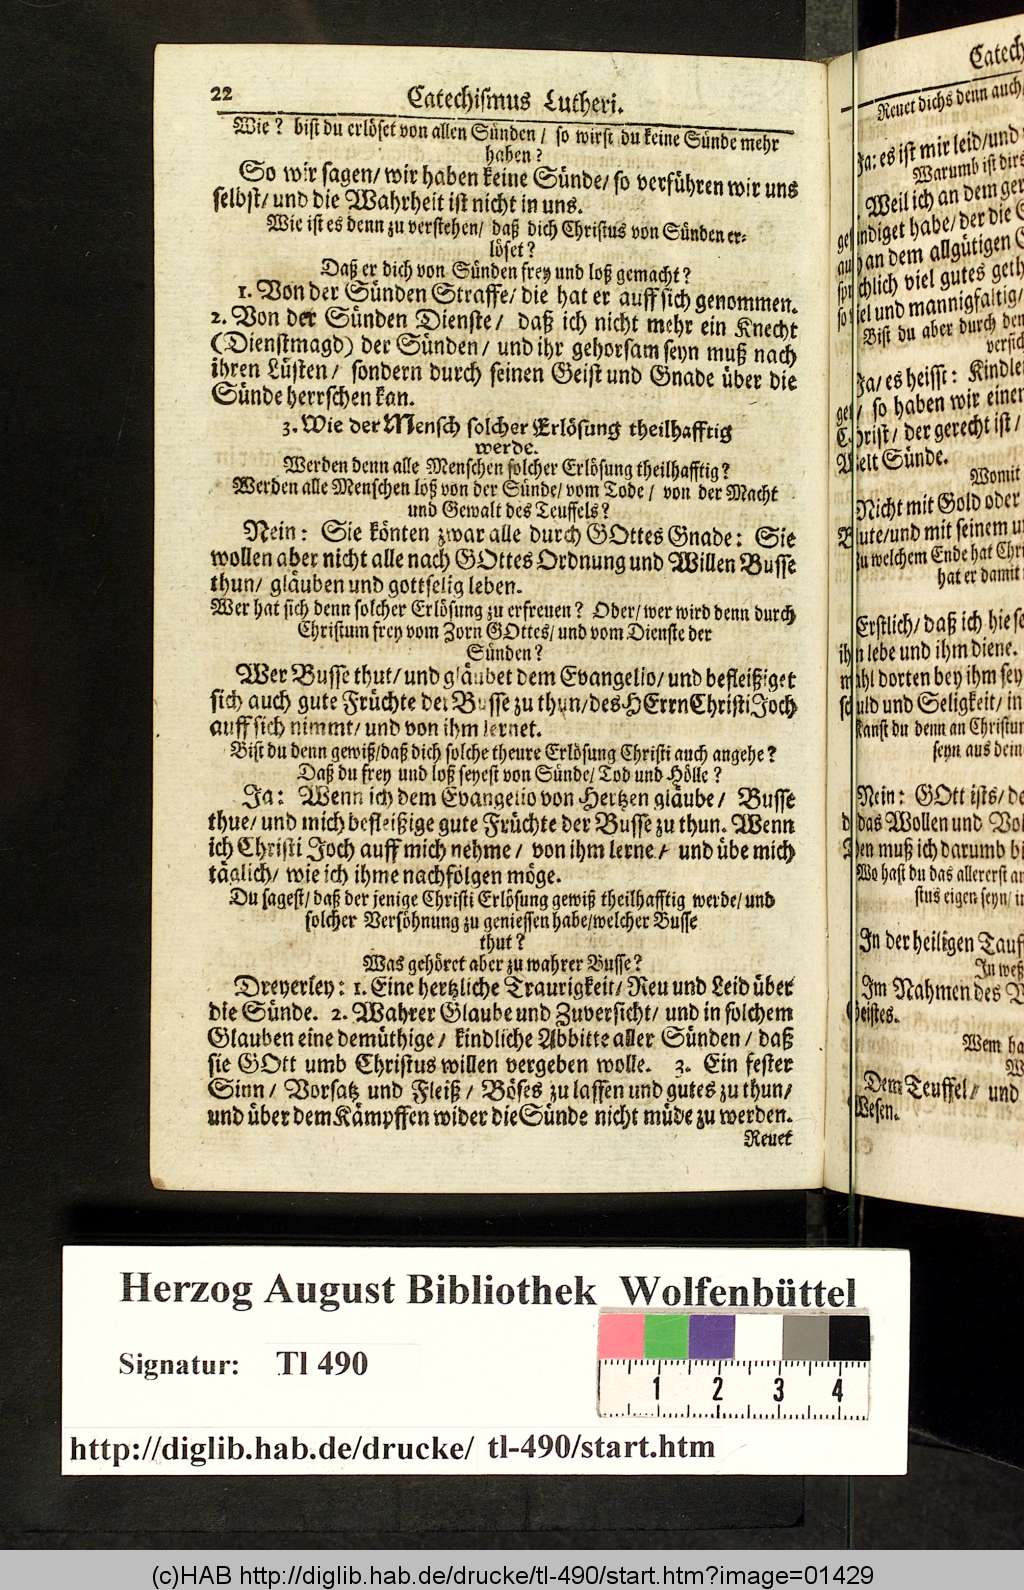 22
Catechismus Lutheri.
Wie? bist du erlöset von allen Sünden / so wirst du keine Sünde mehr
haben?
So wir sagen/ wir haben keine Sünde/ so verführen wir uns
selbst/ und die Wahrheit ist nicht in uns.
Wie ist es denn zu verstehen/ daß dich Christus von Sünden er-
löset?
Daß er dich von Sünden frey und loß gemacht?
1. Von der Sünden Straffe/ die hat er auff sich genommen.
2. Von der Sünden Dienste/ daß ich nicht mehr ein Knecht
(Dienstmagd) der Sünden/ und ihr gehorsam seyn muß nach
ihren Lüsten/ sondern durch seinen Geist und Gnade über die
Sünde herrschen kan.
3. Wie der Mensch solcher Erlösung theilhafftig
werde.
Werden denn alle Menschen solcher Erlösung theilhafftig?
Werden alle Menschen loß von der Sünde/ vom Tode/ von der Macht
und Gewalt des Teuffels?
Nein: Sie könten zwar alle durch GOttes Gnade: Sie
wollen aber nicht alle nach GOttes Ordnung und Willen Busse
thun/ gläuben und gottselig leben.
Wer hat sich denn solcher Erlösung zu erfreuen? Oder/ wer wird denn durch
Christum frey vom Zorn GOttes/ und vom Dienste der
Sünden?
Wer Busse thut/ und gläubet dem Evangelio/ und befleißiget
sich auch gute Früchte der Busse zu thun/ des HErrn Christi Joch
auff sich nimmt/ und von ihm lernet.
Bist du denn gewiß/ daß dich solche theure Erlösung Christi auch angehe?
Daß du frey und loß seyest von Sünde/ Tod und Hölle?
Ja: Wenn ich dem Evangelio von Hertzen gläube/ Busse
thue/ und mich befleißige gute Früchte der Busse zu thun. Wenn
ich Christi Joch auff mich nehme/ von ihm lerne/ und übe mich
täglich/ wie ich ihme nachfolgen möge.
Du sagest/ daß der jenige Christi Erlösung gewiß theilhafftig werde/ und
solcher Versöhnung zu geniessen habe/ welcher Busse
thut?
Was gehöret aber zu wahrer Busse?
Dreyerley: 1. Eine hertzliche Traurigkeit/ Reu und Leid über
die Sünde. 2. Wahrer Glaube und Zuversicht/ und in solchem
Glauben eine demüthige/ kindliche Abbitte aller Sünden/ daß
sie GOtt umb Christus willen vergeben wolle. 3. Ein fester
Sinn/ Vorsatz und Fleiß/ Böses zu lassen und gutes zu thun/
und über dem Kämpffen wider die Sünde nicht müde zu werden.
Reuet
Catech
Reuet dichs denn auch/
Ja: es ist mir leid/ und
Warumb ist dirs
Weil ich an dem ger
ndiget habe/ der die
an dem allgütigen
chlich viel gutes geth
iel und mannigfaltig/
Bist du aber durch den
versich
Ja/ es heisst: Kindle
/ so haben wir einen
Christ/ der gerecht ist/
Welt Sünde.
Womit
Nicht mit Gold oder
Blute/ und mit seinem
Zu welchem Ende hat Chri
hat er damit
Erstlich/ daß ich hie
ihm lebe und ihm diene.
dorten bey ihm sey
schuld und Seligkeit/ in
Kanst du denn an Christum
seyn aus dein
Nein: GOtt ists/
das Wollen und Vol
muß ich darumb
Wo hast du das allererst
stus eigen seyn/
In der heiligen Tauf
In weß
Im Nahmen des
Geistes.
Wem ha
Dem Teuffel/ und
Wesen.
Herzog August Bibliothek Wolfenbüttel
Signatur: Tl 490
1 2 3 4
http://diglib.hab.de/drucke/ tl-490/start.htm
(c)HAB http://diglib.hab.de/drucke/tl-490/start.htm?image=01429